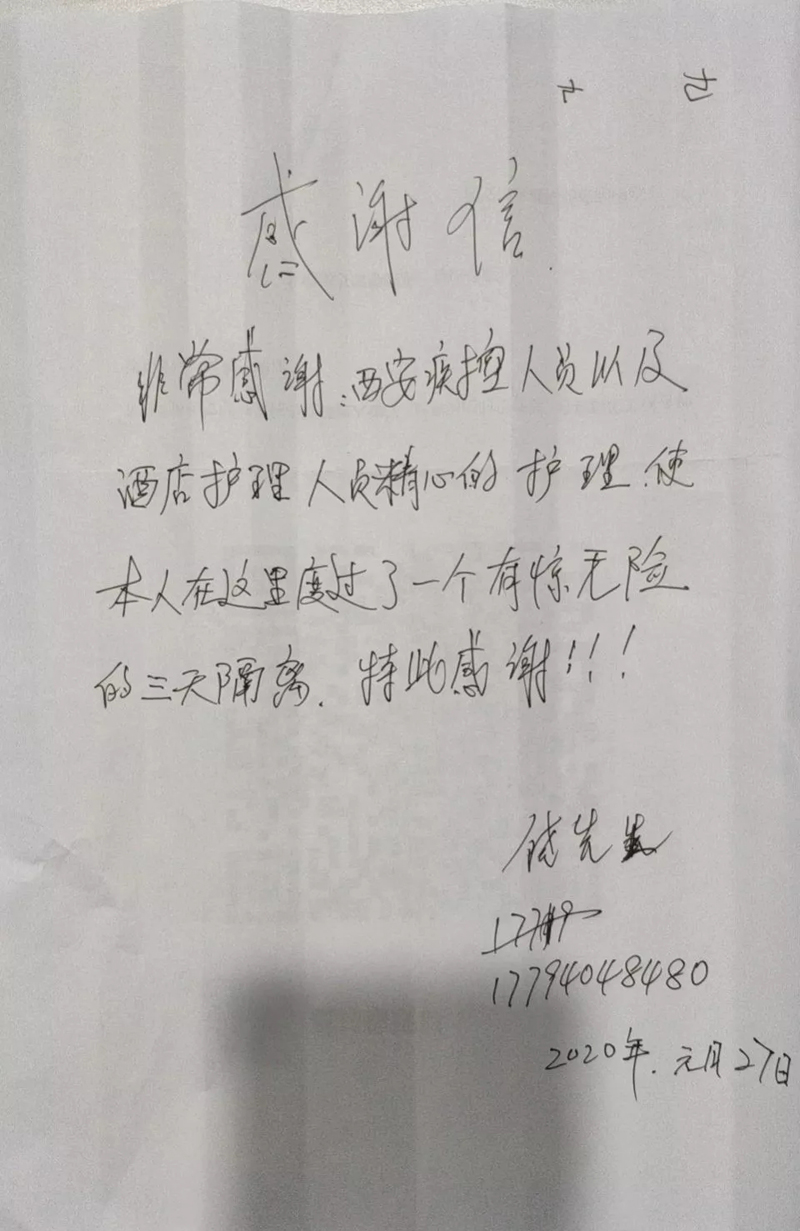 感谢信.
非常感谢:西安疾控人员以及
酒店护理人员精心的护理.使
本人在这里度过了一个有惊无险
的三天隔离.特此感谢!!!
先生
17794048480
2020年.元月27日